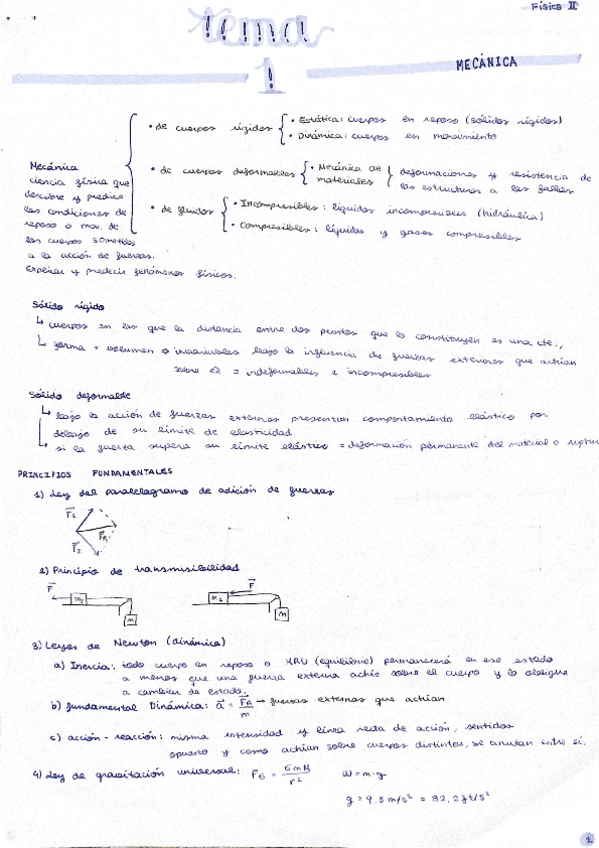 Física II
tema
1
MECÁNICA
Mecánica
ciencia física que
describe y predice
las condiciones de
reposo o mov. de
los cuerpos sometidos
a la acción de fuerzas.
Explicar y predecir fenómenos físicos.
• de cuerpos rígidos
• Estática: cuerpos en reposo (sólidos rígidos)
• Dinámica: cuerpos en movimiento
• de cuerpos deformables
• Mecánica de
materiales
deformaciones y resistencia de
las estructuras a las fallas
• de fluidos
• Incompresibles: líquidos incompresibles (hidráulica)
• Compresibles: líquidos y gases compresibles
Sólido rígido
↳ cuerpos en los que la distancia entre dos puntos que lo constituyen es una cte.,
↳ forma + volumen invariables bajo la influencia de fuerzas exteriores que actúan
sobre él = indeformables e incompresibles
Sólido deformable
↳ bajo la acción de fuerzas externas presentan comportamiento elástico por
debajo de su límite de elasticidad
↳ si la fuerza supera su límite elástico = deformación permanente del material o ruptur
PRINCIPIOS FUNDAMENTALES
1) Ley del paralelogramo de adición de fuerzas
F₁
F_R
F₂
2) Principio de transmisibilidad
F
m₂
m
F
m₂
m
3) Leyes de Newton (dinámica)
a) Inercia: todo cuerpo en reposo o MRU (equilibrio) permanecerá en ese estado
a menos que una fuerza externa actúe sobre el cuerpo y lo obligue
a cambiar de estado.
b) fundamental Dinámica: a = F_R/m → fuerzas externas que actúan
c) acción-reacción: misma intensidad y línea recta de acción, sentidos
opuesto y como actúan sobre cuerpos distintos, se anulan entre sí.
4) Ley de gravitación universal: F_G = GmM/r² W = m·g
g = 9.8 m/s² = 32,2 ft/s²
1